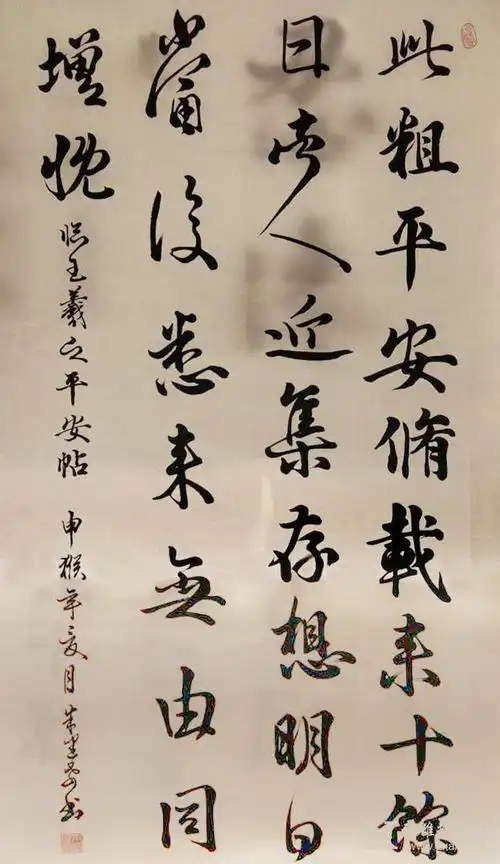 此粗平安脩載来十餘
日諸人近集存想明日
當復悉来無由同
增慨
临王羲之平安帖 申猴年亥月 朱书